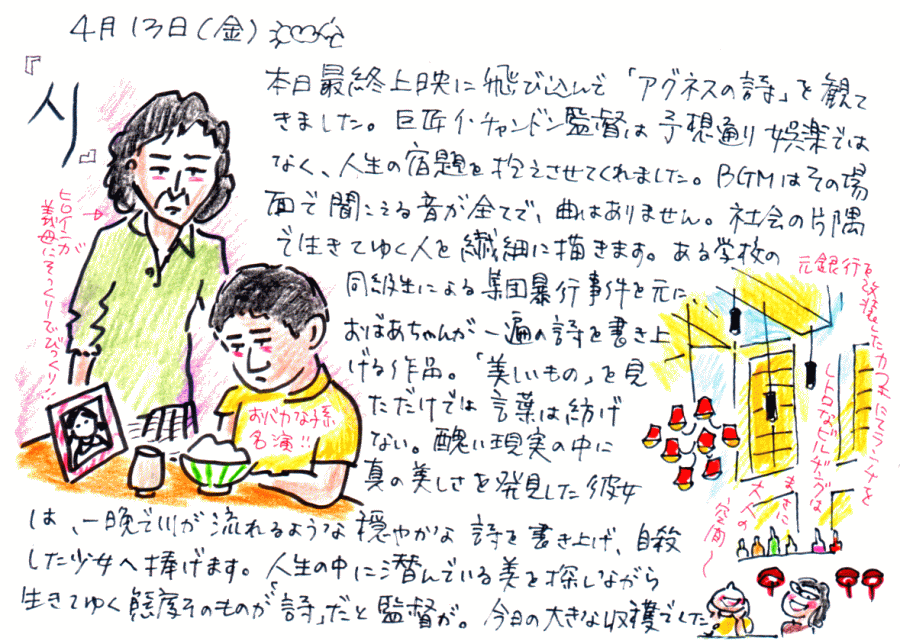 4月13日(金)
『人』
本日最終上映に飛び込んで「アグネスの詩」を観て
きました。巨匠イ・チャンドン監督は予想通り娯楽では
なく、人生の宿題を抱えさせてくれました。BGMはその場
面で聞こえる音が全てで、曲はありません。社会の片隅
で生きてゆく人を繊細に描きます。ある学校の
同級生による集団暴行事件を元に、
おばあちゃんが一遍の詩を書き上
げる作品。「美しいもの」を見
ただけでは言葉は紡げ
ない。醜い現実の中に
真の美しさを発見した彼女
は、一晩で川が流れるような穏やかな詩を書き上げ、自殺
した少女へ捧げます。人生の中に潜んでいる美を探しながら
生きてゆく態度そのものが「詩」だと監督が。今日の大きな収穫でした。
ヒロインが
義母にそっくりでびっくり!!
おバカな孫
名演!!
元銀行を
改装したカフェにてランチを
レトロなビルヂングは
まさに
大人の
空間〜